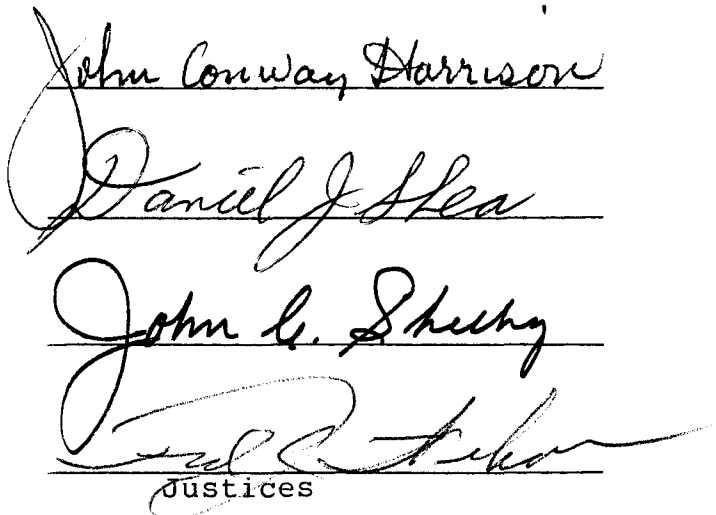 John Conway Harrison
Daniel J Shea
John C. Sheehy
Justices